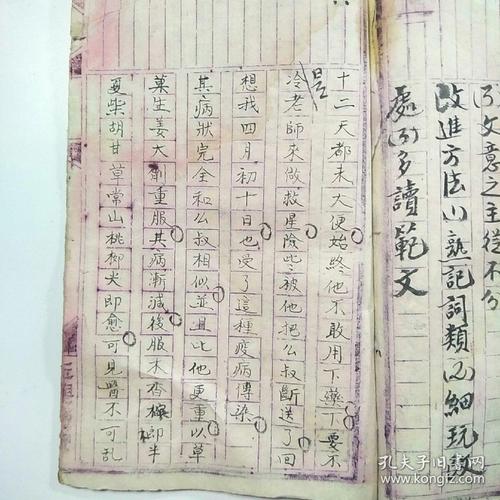 文意之主從不分
改進方法(1)熟記詞類(2)細玩
處(3)多讀範文
十二天都未大便始終他不敢用下藥丁要不
是
冷老師來做救星險些被他把公叔斷送了回
想我四月初十日也受了這種疫病傳染
其病狀完全和公叔相似並且比他更重以草
菓生姜大劑重服其病漸減後服木香檳榔半
夏柴胡甘草常山桃柳尖即愈可見醫不可亂
孔夫子旧书网
www.kongfz.com